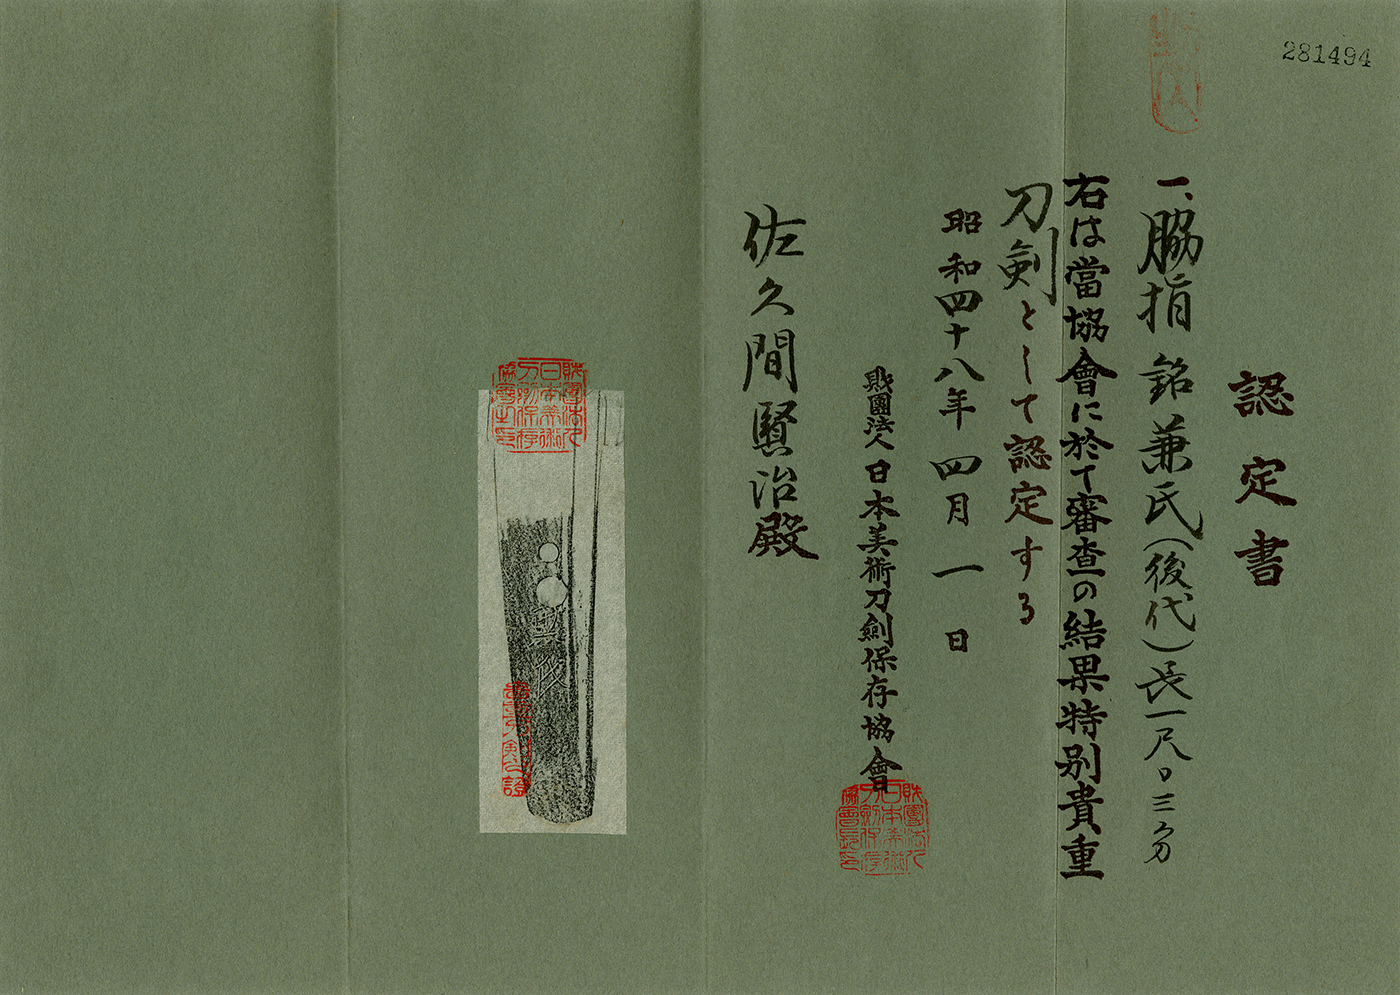 281494
認定書
一、脇指 銘 兼氏(後代)長一尺〇三分
右は當協會に於て審査の結果特別貴重
刀剣として認定する
昭和四十八年 四月 一日
財團法人 日本美術刀劍保存協會
財團法人日本美術刀劍保存協會長印
佐久間賢治殿
財團法人日本美術刀劍保存協會之印